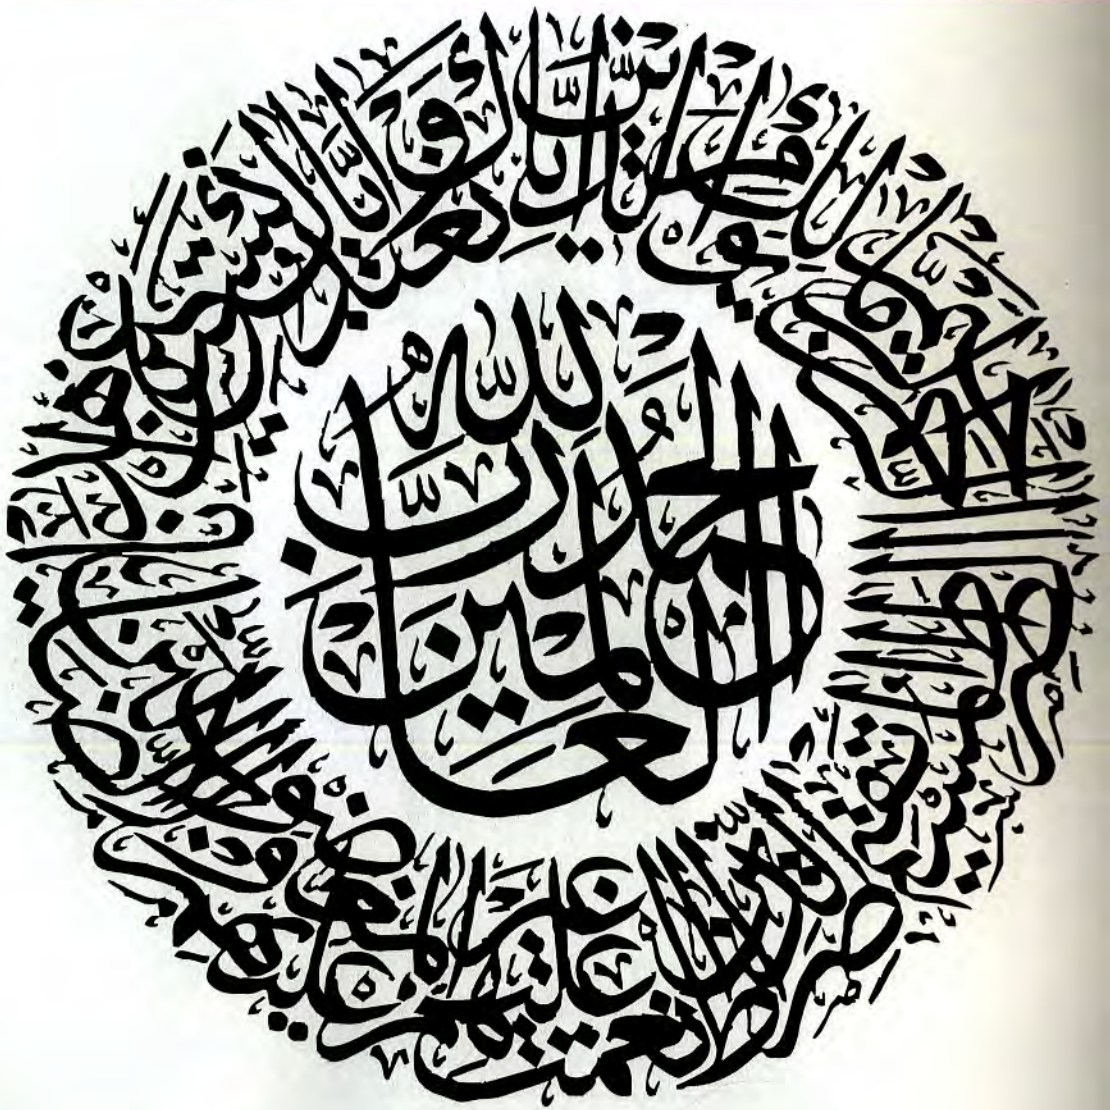 الحمد لله رب العالمين
الرحمن الرحيم مالك يوم الدين إياك نعبد وإياك نستعين اهدنا
الصراط المستقيم صراط الذين أنعمت عليهم غير المغضوب عليهم ولا الضالين